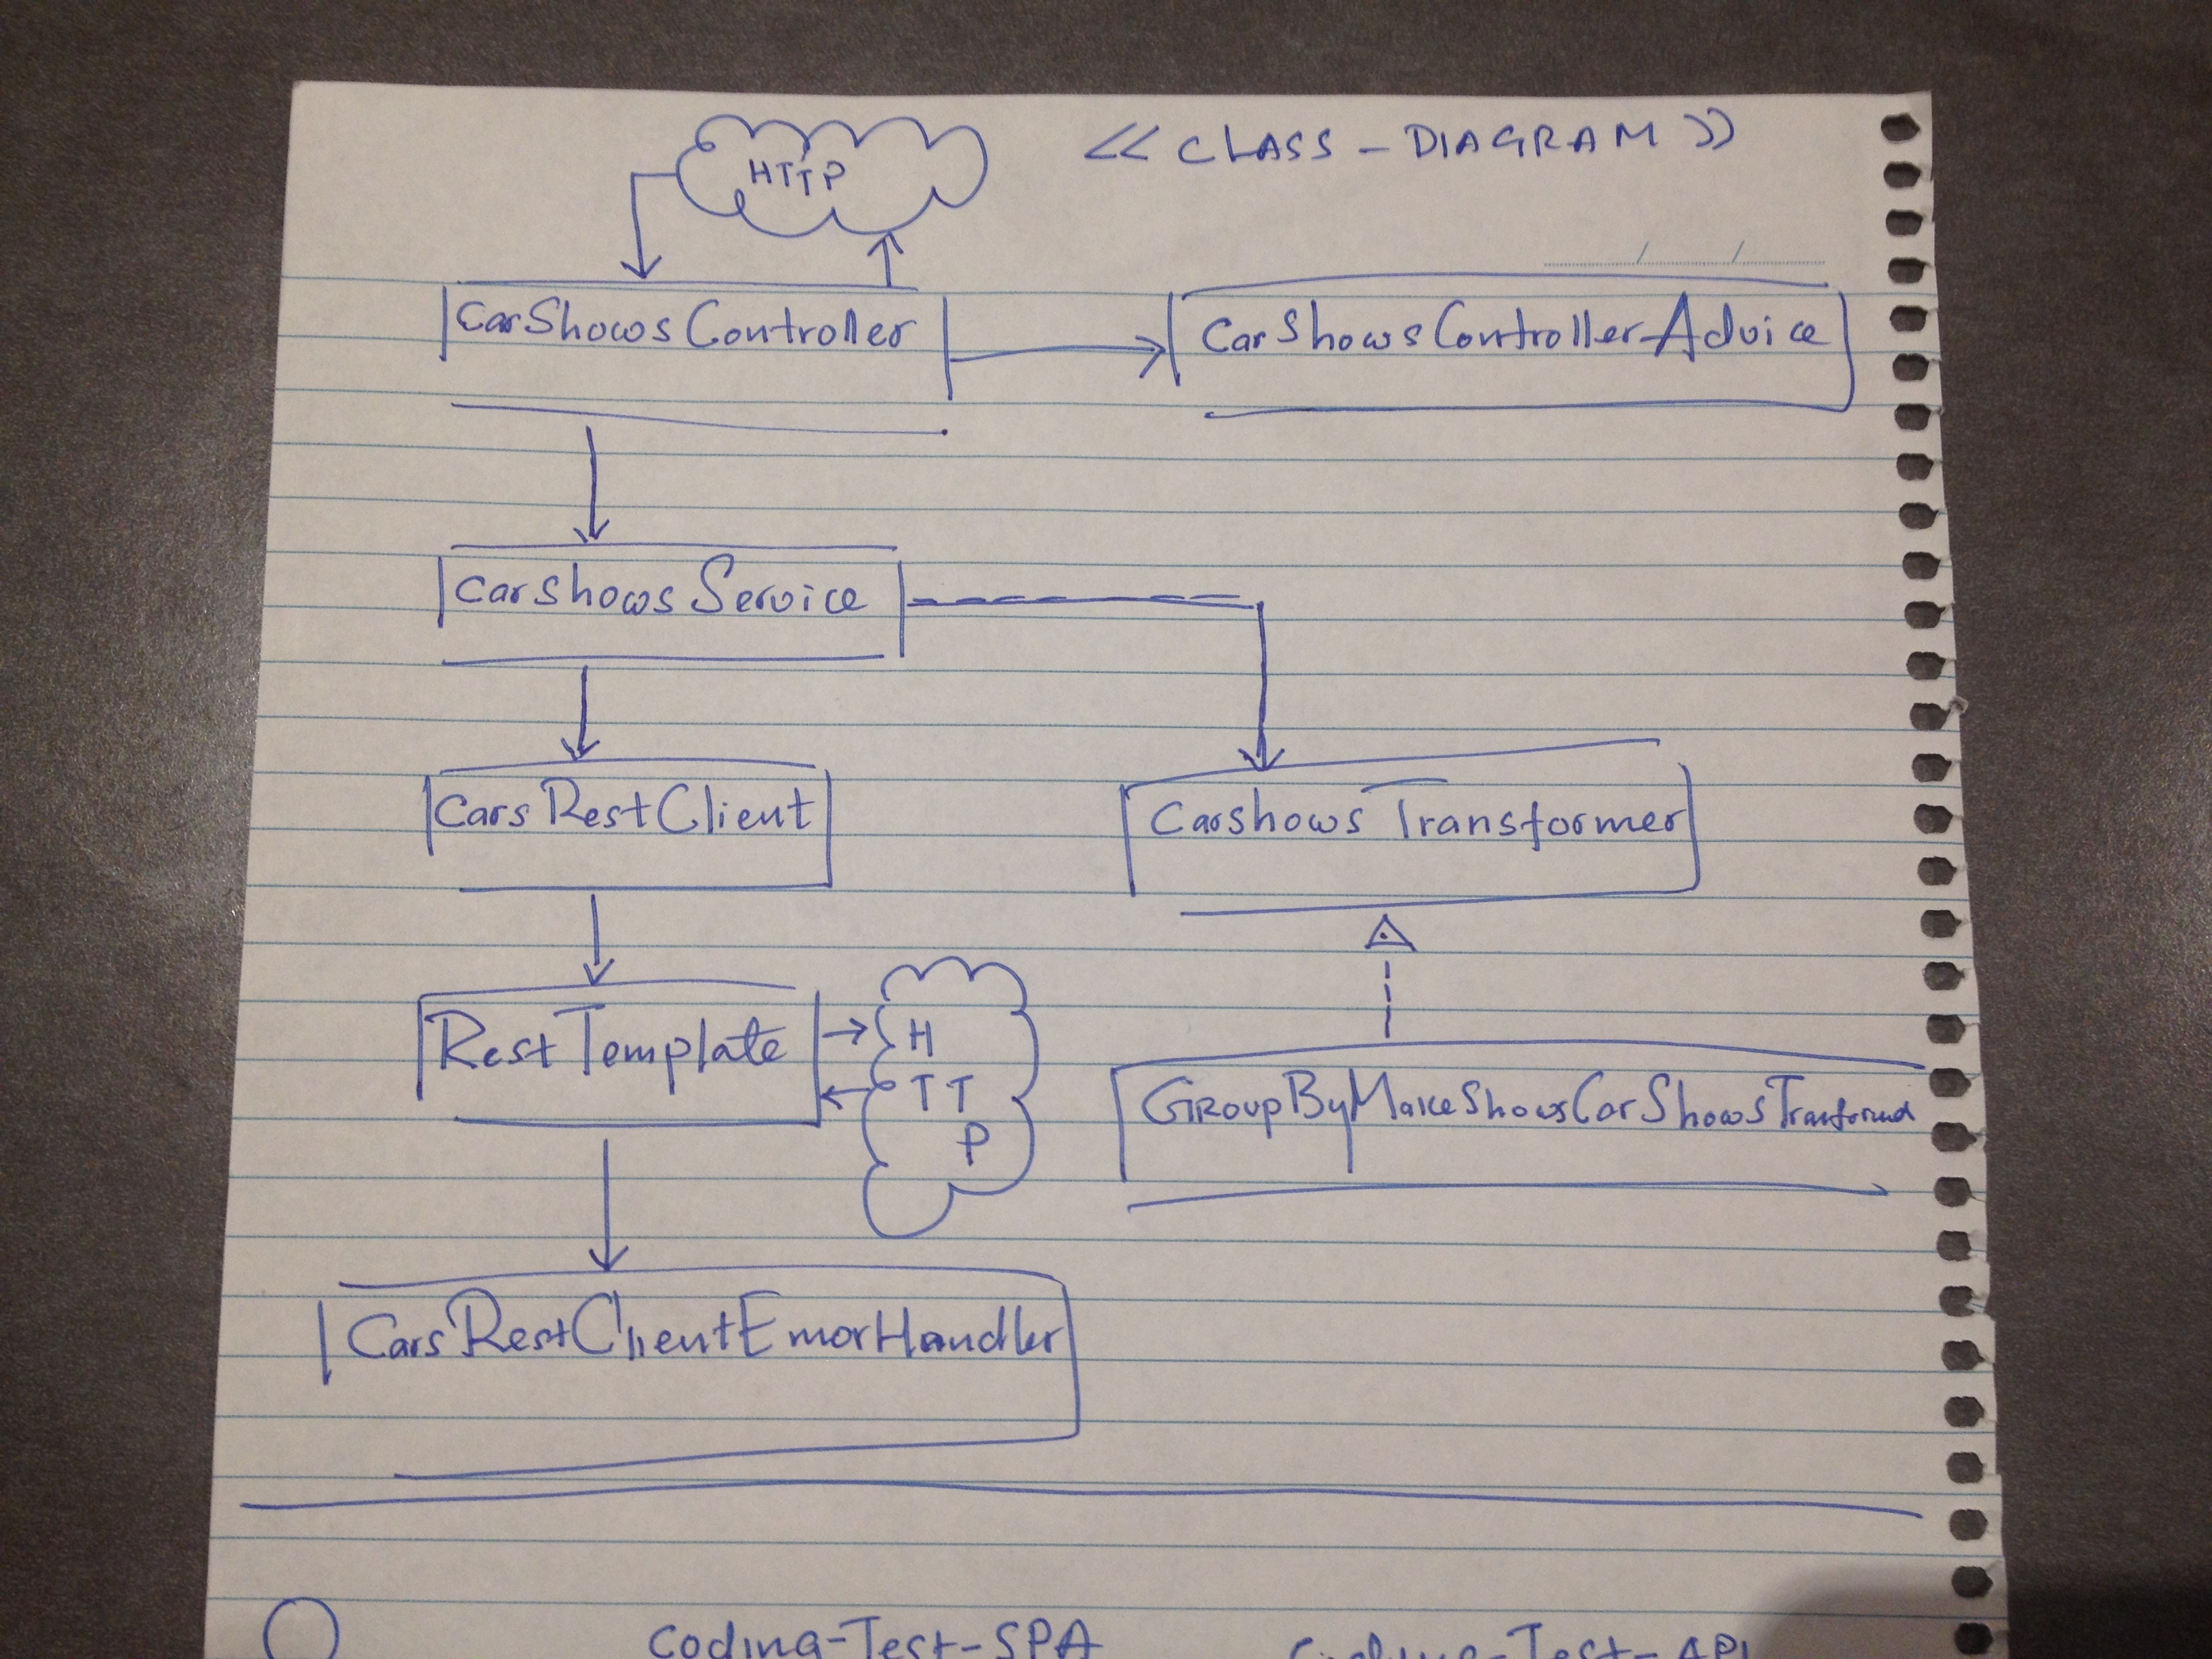 HTTP
<< CLASS - DIAGRAM >>
CarShowsController
CarShowsControllerAdvice
CarShowsService
CarsRestClient
CarshowsTransformer
RestTemplate
H
TT
P
GroupByMakeShowsCarShows
CarsRestClientErrorHandler
Coding-Test-SPA
Coding-Test-API